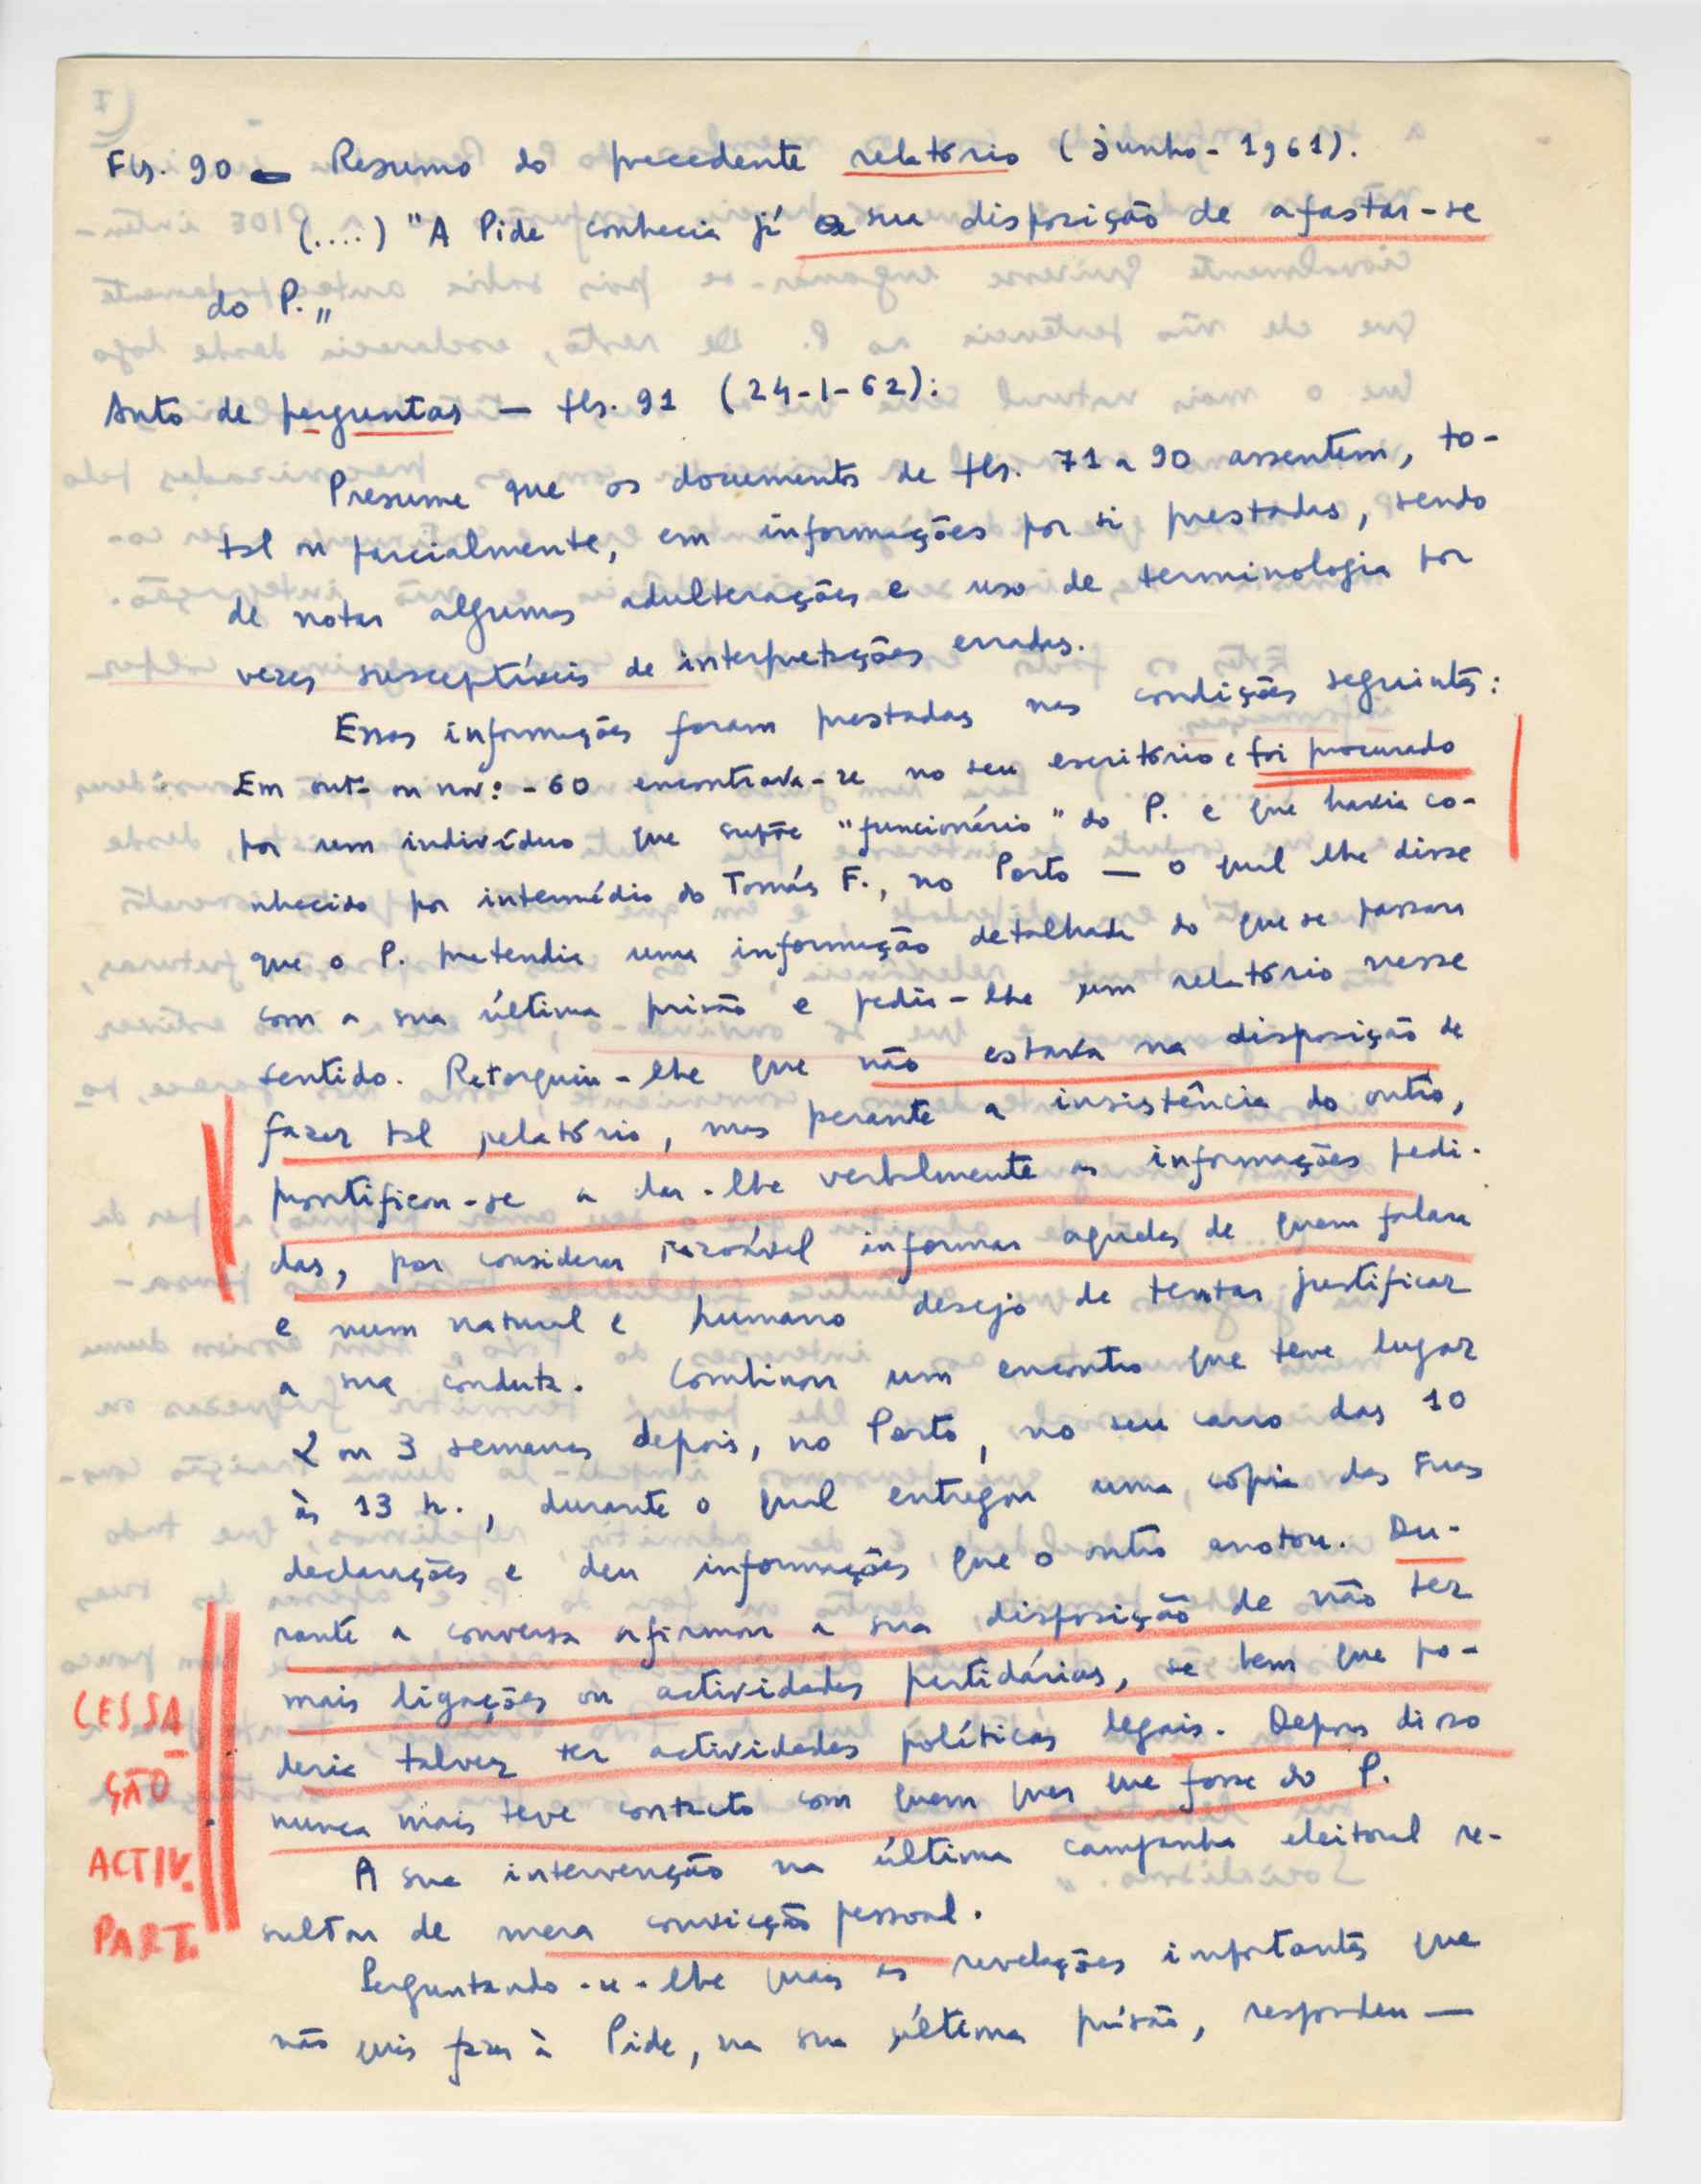 Fls. 90 - Resumo do precedente relatório (junho - 1961).
(....) "A Pide conhecia já a sua disposição de afastar-se
do P."
Auto de perguntas — fls. 91 (24-1-62):
Presume que os documentos de fls. 71 a 90 assentem, to-
tal ou parcialmente, em informações por si prestadas, sendo
de notar algumas adulterações e uso de terminologia por
vezes susceptíveis de interpretações erradas.
Essas informações foram prestadas nas condições seguintes:
Em outº ou novº - 60 encontrava-se no seu escritório e foi procurado
por um indivíduo que supõe "funcionário" do P. e que havia co-
nhecido por intermédio do Tomás F., no Porto — o qual lhe disse
que o P. pretendia uma informação detalhada do que se passara
com a sua última prisão e pediu-lhe um relatório nesse
sentido. Retorquiu-lhe que não estava na disposição de
fazer tal relatório, mas perante a insistência do outro,
prontificou-se a dar-lhe verbalmente as informações pedi-
das, por considerar razoável informar aqueles de quem falara
e num natural e humano desejo de tentar justificar
a sua conduta. Combinou um encontro que teve lugar
2 ou 3 semanas depois, no Porto, no seu carro das 10
às 13 h., durante o qual entregou uma cópia das suas
declarações e deu informações que o outro anotou. Du-
rante a conversa afirmou a sua disposição de não ter
mais ligações ou actividades partidárias, se bem que po-
deria talvez ter actividades políticas legais. Depois disso
nunca mais teve contacto com quem quer que fosse do P.
CESSA
ÇÃO
ACTIV.
PART.
A sua intervenção na última campanha eleitoral re-
sultou de mera convicção pessoal.
Perguntando-se-lhe quais as revelações importantes que
não quis fazer à Pide, na sua última prisão, respondeu —